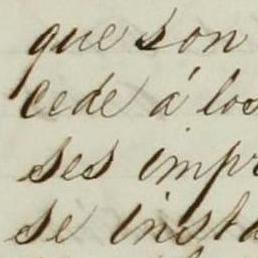 que son
cede á los
ses impr
se insta